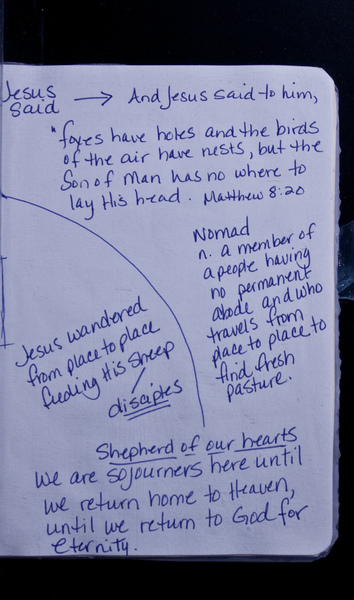 Jesus said → And Jesus said to him,
"foxes have holes and the birds
of the air have nests, but the
Son of Man has no where to
lay His head. Matthew 8:20
Nomad
n. a member of
a people having
no permanent
abode and who
travels from
place to place to
find fresh
pasture.
Jesus wandered
from place to place
feeding His sheep
disciples
Shepherd of our hearts
We are sojourners here until
we return home to Heaven,
until we return to God for
eternity.